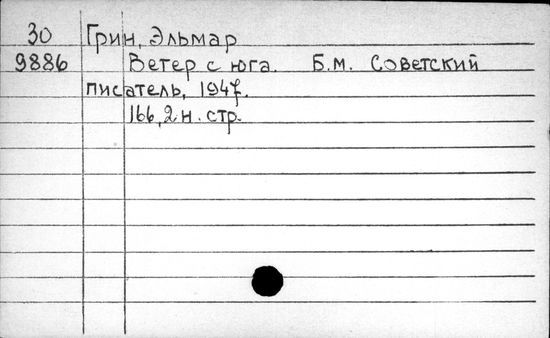 30 Грин, Эльмар
9886 Ветер с юга. Б.м. Советский
писатель, 1947.
166, 2 н. стр.